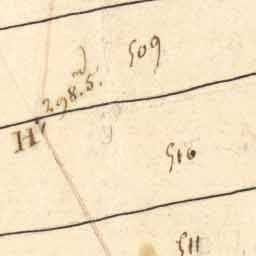 509
298.5.
H
510
511